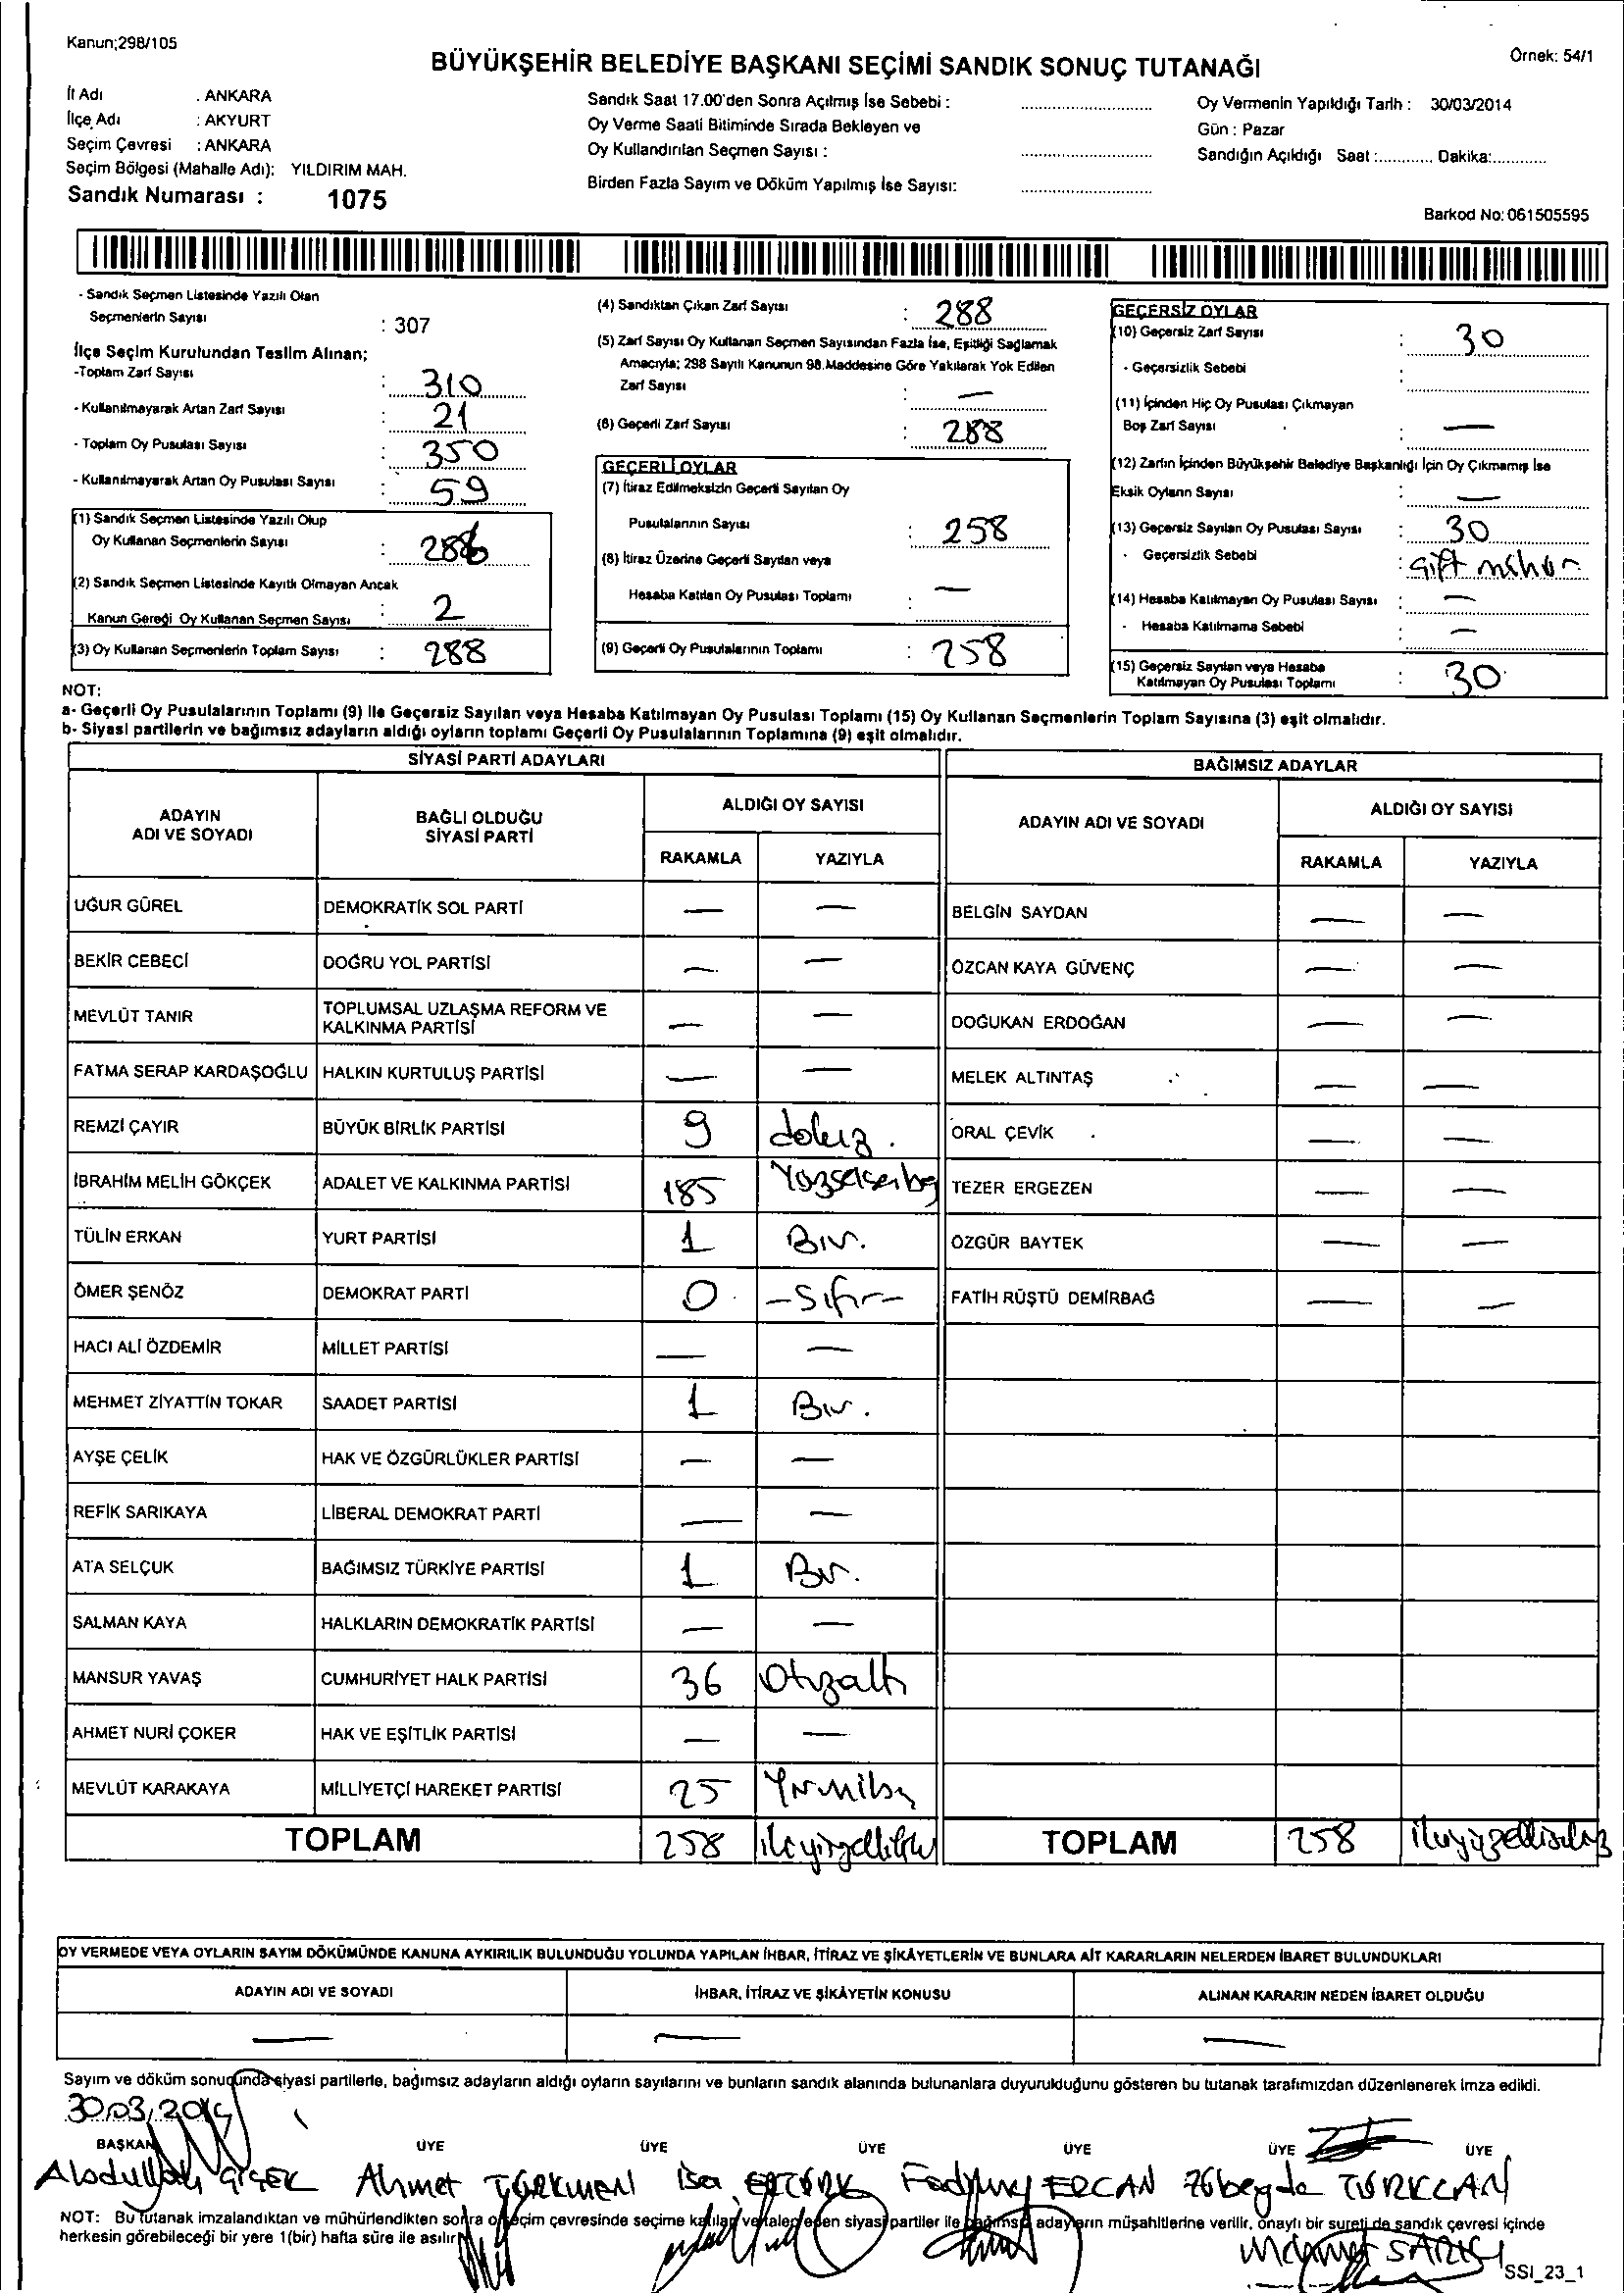 Kanun;298/105
Örnek: 54/1
BÜYÜKŞEHİR BELEDİYE BAŞKANI SEÇİMİ SANDIK SONUÇ TUTANAĞI
İl Adı : ANKARA
İlçe Adı : AKYURT
Seçim Çevresi : ANKARA
Seçim Bölgesi (Mahalle Adı): YILDIRIM MAH.
Sandık Numarası : 1075
Sandık Saat 17.00'den Sonra Açılmış İse Sebebi :
Oy Verme Saati Bitiminde Sırada Bekleyen ve
Oy Kullandırılan Seçmen Sayısı :
Birden Fazla Sayım ve Döküm Yapılmış İse Sayısı:
Oy Vermenin Yapıldığı Tarih : 30/03/2014
Gün : Pazar
Sandığın Açıldığı Saat :............ Dakika:............
Barkod No: 061505595
- Sandık Seçmen Listesinde Yazılı Olan
Seçmenlerin Sayısı : 307
İlçe Seçim Kurulundan Teslim Alınan;
-Toplam Zarf Sayısı : 310
- Kullanılmayarak Artan Zarf Sayısı : 21
- Toplam Oy Pusulası Sayısı : 350
- Kullanılmayarak Artan Oy Pusulası Sayısı : 59
(1) Sandık Seçmen Listesinde Yazılı Olup
Oy Kullanan Seçmenlerin Sayısı : 286
(2) Sandık Seçmen Listesinde Kayıtlı Olmayan Ancak
Kanun Gereği Oy Kullanan Seçmen Sayısı : 2
(3) Oy Kullanan Seçmenlerin Toplam Sayısı : 288
(4) Sandıktan Çıkan Zarf Sayısı : 288
(5) Zarf Sayısı Oy Kullanan Seçmen Sayısından Fazla İse, Eşitliği Sağlamak
Amacıyla; 298 Sayılı Kanunun 98.Maddesine Göre Yakılarak Yok Edilen
Zarf Sayısı : —
(6) Geçerli Zarf Sayısı : 288
GEÇERLİ OYLAR
(7) İtiraz Edilmeksizin Geçerli Sayılan Oy
Pusulalarının Sayısı : 258
(8) İtiraz Üzerine Geçerli Sayılan veya
Hesaba Katılan Oy Pusulası Toplamı : —
(9) Geçerli Oy Pusulalarının Toplamı : 258
GEÇERSİZ OYLAR
(10) Geçersiz Zarf Sayısı : 30
- Geçersizlik Sebebi :
(11) İçinden Hiç Oy Pusulası Çıkmayan
Boş Zarf Sayısı : —
(12) Zarfın İçinden Büyükşehir Belediye Başkanlığı İçin Oy Çıkmamış İse
Eksik Oyların Sayısı : —
(13) Geçersiz Sayılan Oy Pusulası Sayısı : 30
- Geçersizlik Sebebi : çift mühür
(14) Hesaba Katılmayan Oy Pusulası Sayısı : —
- Hesaba Katılmama Sebebi : —
(15) Geçersiz Sayılan veya Hesaba
Katılmayan Oy Pusulası Toplamı : 30
NOT:
a- Geçerli Oy Pusulalarının Toplamı (9) ile Geçersiz Sayılan veya Hesaba Katılmayan Oy Pusulası Toplamı (15) Oy Kullanan Seçmenlerin Toplam Sayısına (3) eşit olmalıdır.
b- Siyasi partilerin ve bağımsız adayların aldığı oyların toplamı Geçerli Oy Pusulalarının Toplamına (9) eşit olmalıdır.
SİYASİ PARTİ ADAYLARI
BAĞIMSIZ ADAYLAR
ADAYIN ADI VE SOYADI
BAĞLI OLDUĞU SİYASİ PARTİ
ALDIĞI OY SAYISI
RAKAMLA YAZIYLA
ADAYIN ADI VE SOYADI
ALDIĞI OY SAYISI
RAKAMLA YAZIYLA
UĞUR GÜREL DEMOKRATİK SOL PARTİ — — BELGİN SAYDAN — —
BEKİR CEBECİ DOĞRU YOL PARTİSİ — — ÖZCAN KAYA GÜVENÇ — —
MEVLÜT TANIR TOPLUMSAL UZLAŞMA REFORM VE KALKINMA PARTİSİ — — DOĞUKAN ERDOĞAN — —
FATMA SERAP KARDAŞOĞLU HALKIN KURTULUŞ PARTİSİ — — MELEK ALTINTAŞ — —
REMZİ ÇAYIR BÜYÜK BİRLİK PARTİSİ 9 dokuz. ORAL ÇEVİK — —
İBRAHİM MELİH GÖKÇEK ADALET VE KALKINMA PARTİSİ 185 Yüzseksenbeş TEZER ERGEZEN — —
TÜLİN ERKAN YURT PARTİSİ 1 Bir. ÖZGÜR BAYTEK — —
ÖMER ŞENÖZ DEMOKRAT PARTİ 0 -Sıfır- FATİH RÜŞTÜ DEMİRBAĞ — —
HACI ALİ ÖZDEMİR MİLLET PARTİSİ — —
MEHMET ZİYATTİN TOKAR SAADET PARTİSİ 1 Bir.
AYŞE ÇELİK HAK VE ÖZGÜRLÜKLER PARTİSİ — —
REFİK SARIKAYA LİBERAL DEMOKRAT PARTİ — —
ATA SELÇUK BAĞIMSIZ TÜRKİYE PARTİSİ 1 Bir.
SALMAN KAYA HALKLARIN DEMOKRATİK PARTİSİ — —
MANSUR YAVAŞ CUMHURİYET HALK PARTİSİ 36 Otuzaltı
AHMET NURİ ÇOKER HAK VE EŞİTLİK PARTİSİ — —
MEVLÜT KARAKAYA MİLLİYETÇİ HAREKET PARTİSİ 25 Yirmibeş
TOPLAM 258 TOPLAM 258 ikiyüzellisekiz
OY VERMEDE VEYA OYLARIN SAYIM DÖKÜMÜNDE KANUNA AYKIRILIK BULUNDUĞU YOLUNDA YAPILAN İHBAR, İTİRAZ VE ŞİKÂYETLERİN VE BUNLARA AİT KARARLARIN NELERDEN İBARET BULUNDUKLARI
ADAYIN ADI VE SOYADI İHBAR, İTİRAZ VE ŞİKÂYETİN KONUSU ALINAN KARARIN NEDEN İBARET OLDUĞU
— — —
Sayım ve döküm sonucunda siyasi partilerle, bağımsız adayların aldığı oyların sayılarını ve bunların sandık alanında bulunanlara duyurulduğunu gösteren bu tutanak tarafımızdan düzenlenerek imza edildi.
30.03.2014
BAŞKAN ÜYE ÜYE ÜYE ÜYE ÜYE ÜYE
Abdullah ÇİÇEK Ahmet TÜRKMEN İsa ERTÜRK ERCAN Zübeyde TÜRKCAN
NOT: Bu tutanak imzalandıktan ve mühürlendikten sonra o seçim çevresinde seçime katılan ve talep eden siyasi partiler ile bağımsız adayların müşahitlerine verilir, onaylı bir sureti de sandık çevresi içinde
herkesin görebileceği bir yere 1(bir) hafta süre ile asılır.
Mehmet SARI
SSI_23_1